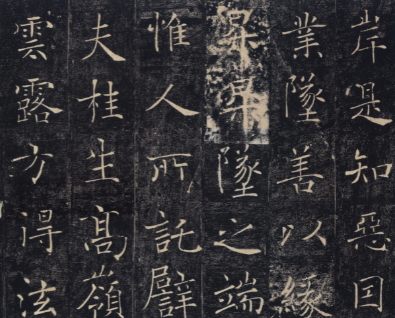 岸是知惡囙
業墜善以緣
昇昇墜之端
惟人所託譬
夫桂生髙嶺
雲露方得泫